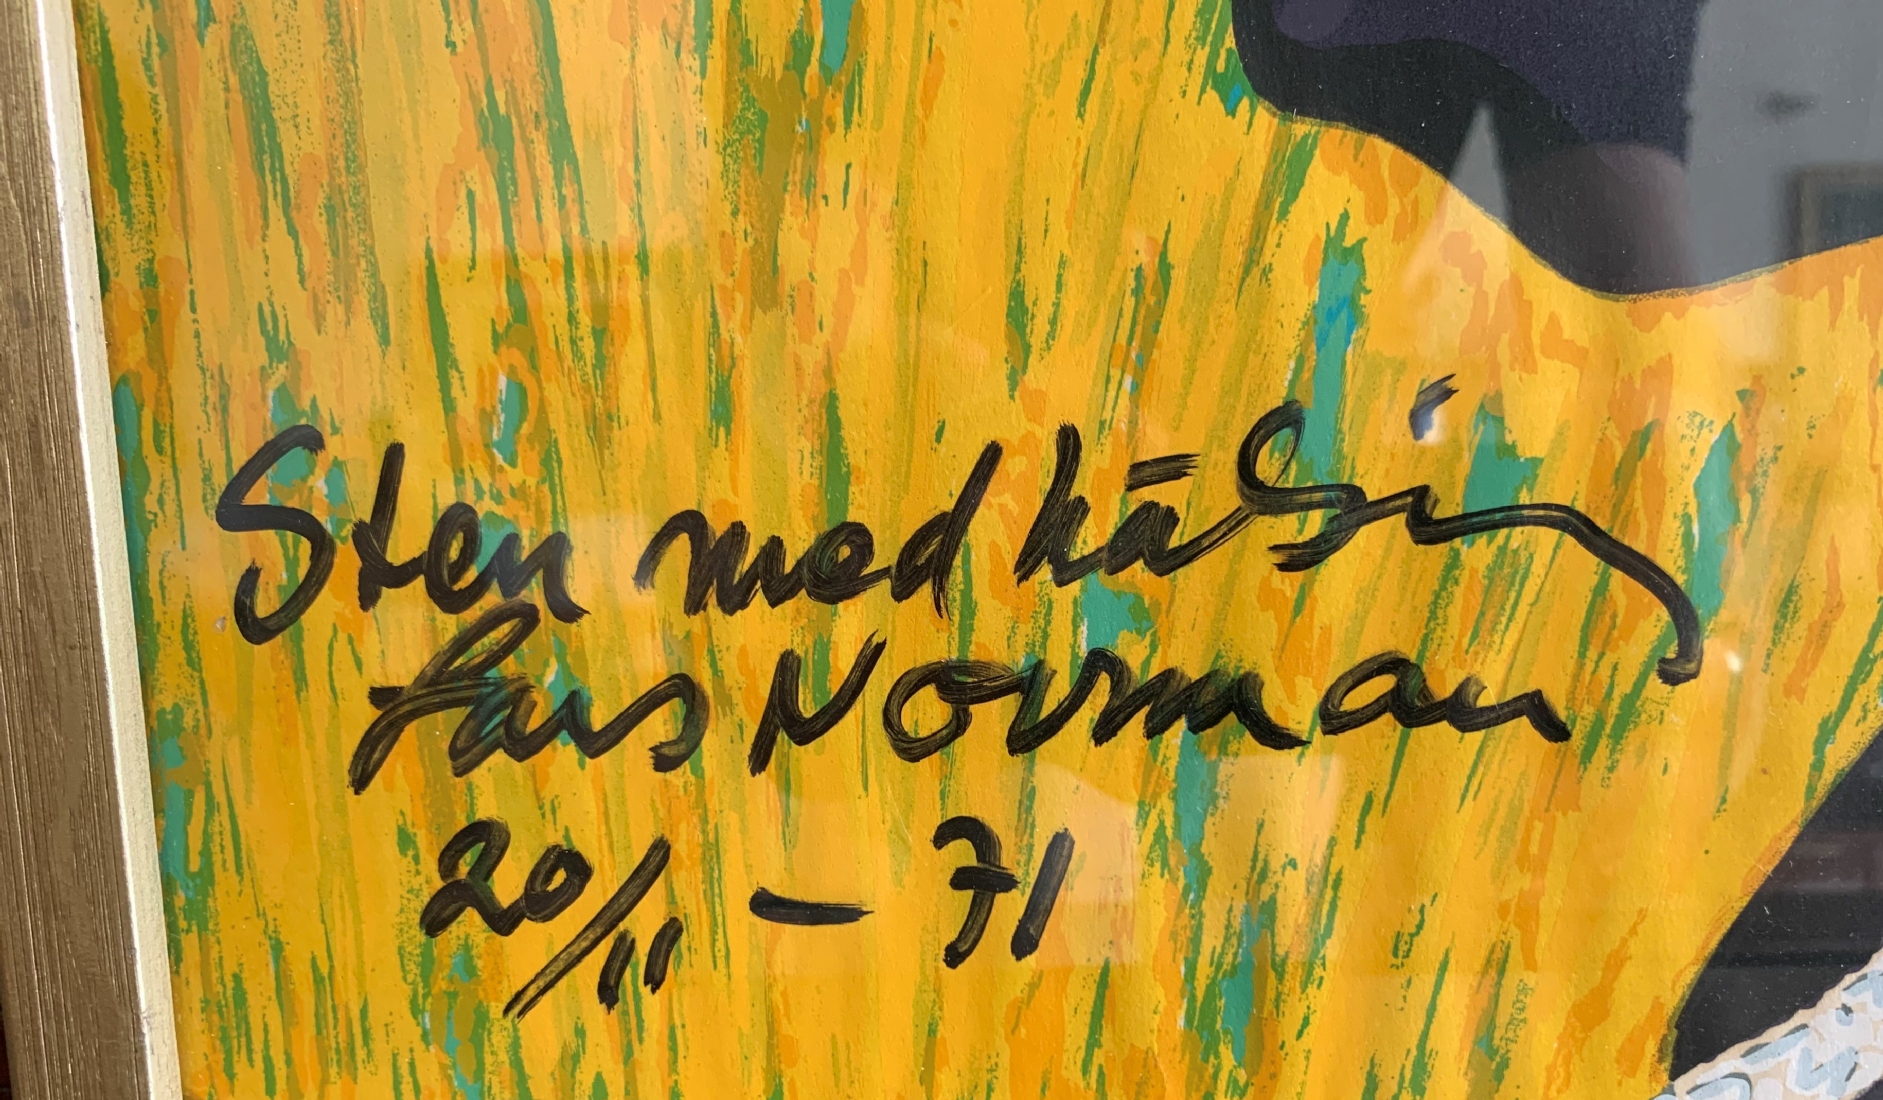 Sten med hälsning
Lars Norrman
20/11 – 71